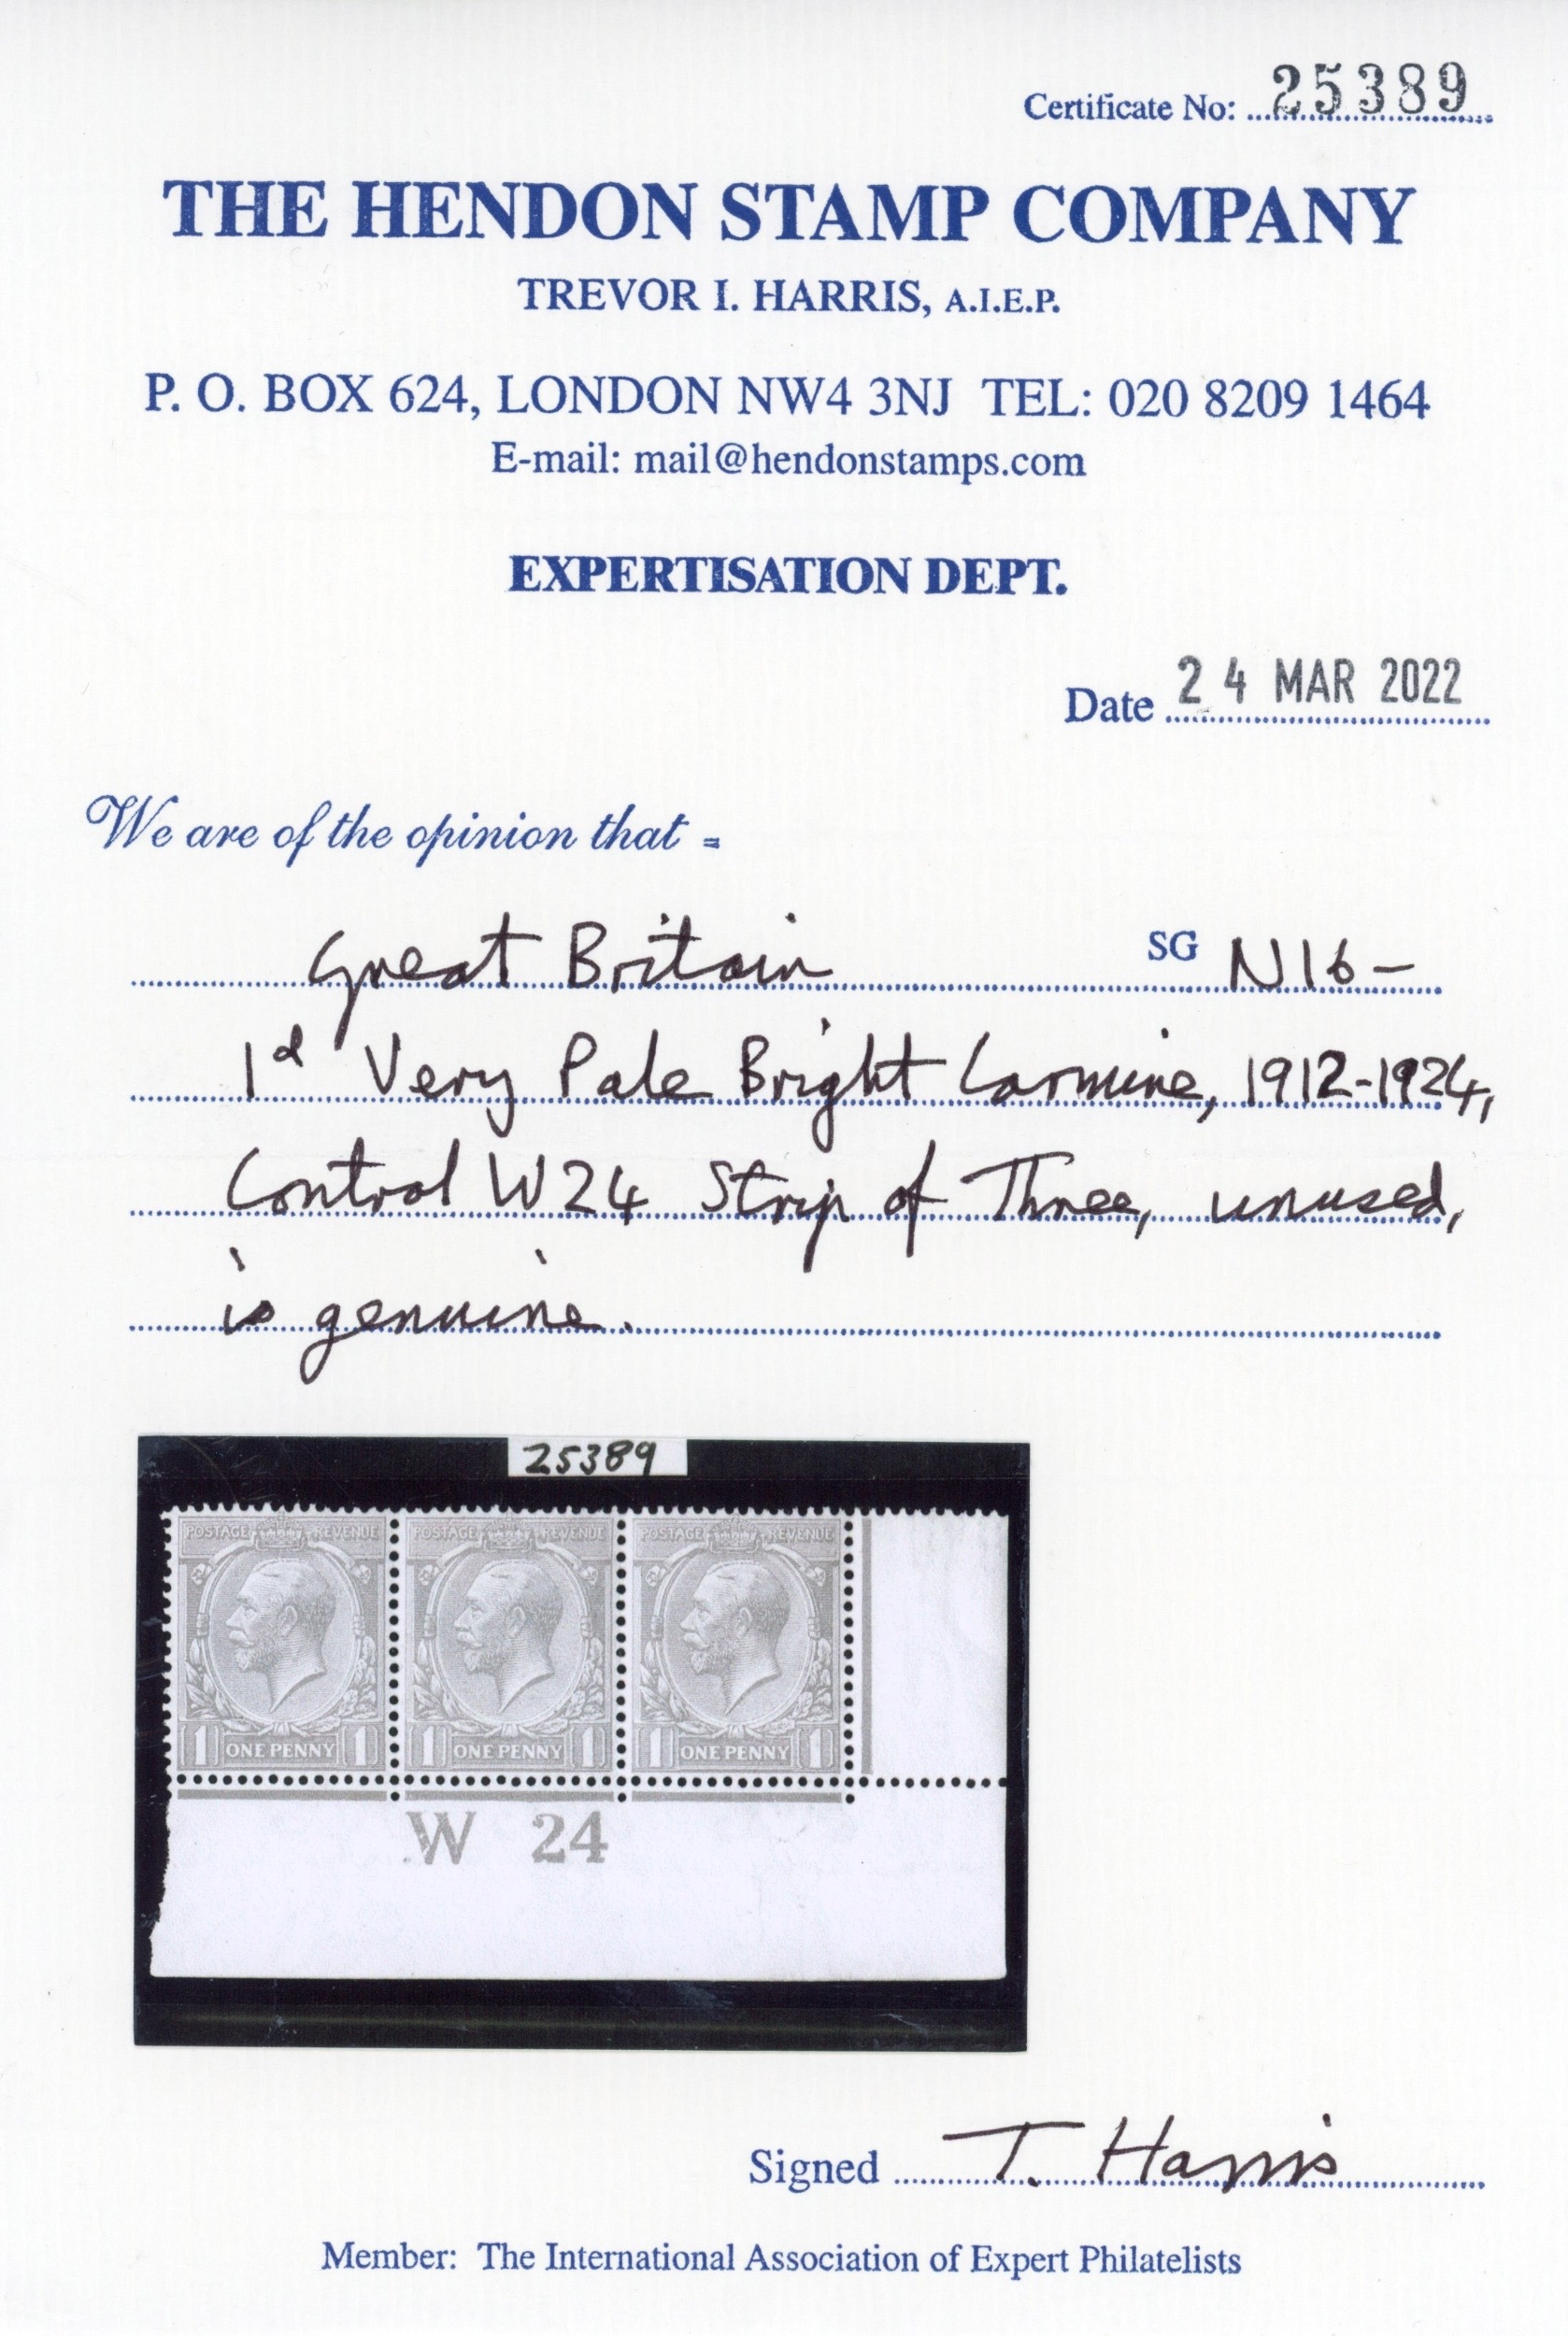 Certificate No: 25389
THE HENDON STAMP COMPANY
TREVOR I. HARRIS, A.I.E.P.
P. O. BOX 624, LONDON NW4 3NJ TEL: 020 8209 1464
E-mail: mail@hendonstamps.com
EXPERTISATION DEPT.
Date 24 MAR 2022
We are of the opinion that =
Great Britain SG N16 –
1d Very Pale Bright Carmine, 1912-1924,
Control W24 Strip of Three, unused,
is genuine.
25389
POSTAGE REVENUE POSTAGE REVENUE POSTAGE REVENUE
1 ONE PENNY 1 1 ONE PENNY 1 1 ONE PENNY 1
W 24
Signed T. Harris
Member: The International Association of Expert Philatelists